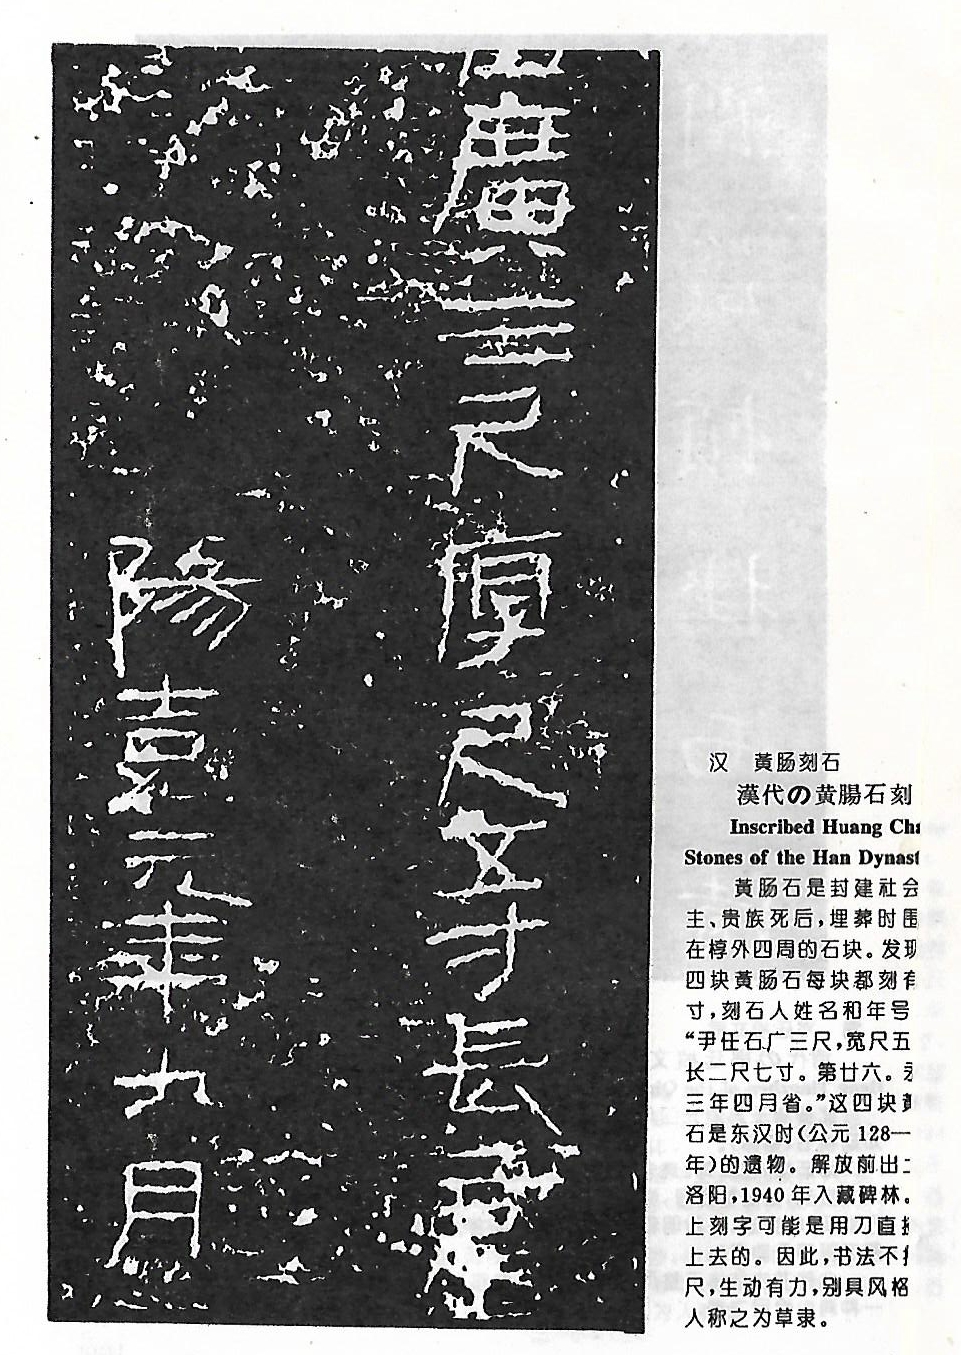 廣三尺厚尺五寸長
陽嘉元年九月
汉 黃肠刻石
漢代の黄腸石刻
Inscribed Huang
Stones of the Han
黃肠石是封建社会
主、贵族死后，埋葬时围
在椁外四周的石块。发现
四块黃肠石每块都刻有
寸，刻石人姓名和年号
“尹任石广三尺，宽尺五
长二尺七寸。第廿六。
三年四月省。”这四块
石是东汉时（公元128—
年）的遗物。解放前出
洛阳，1940年入藏碑林。
上刻字可能是用刀直
上去的。因此，书法不
尺，生动有力，别具风格
人称之为草隶。